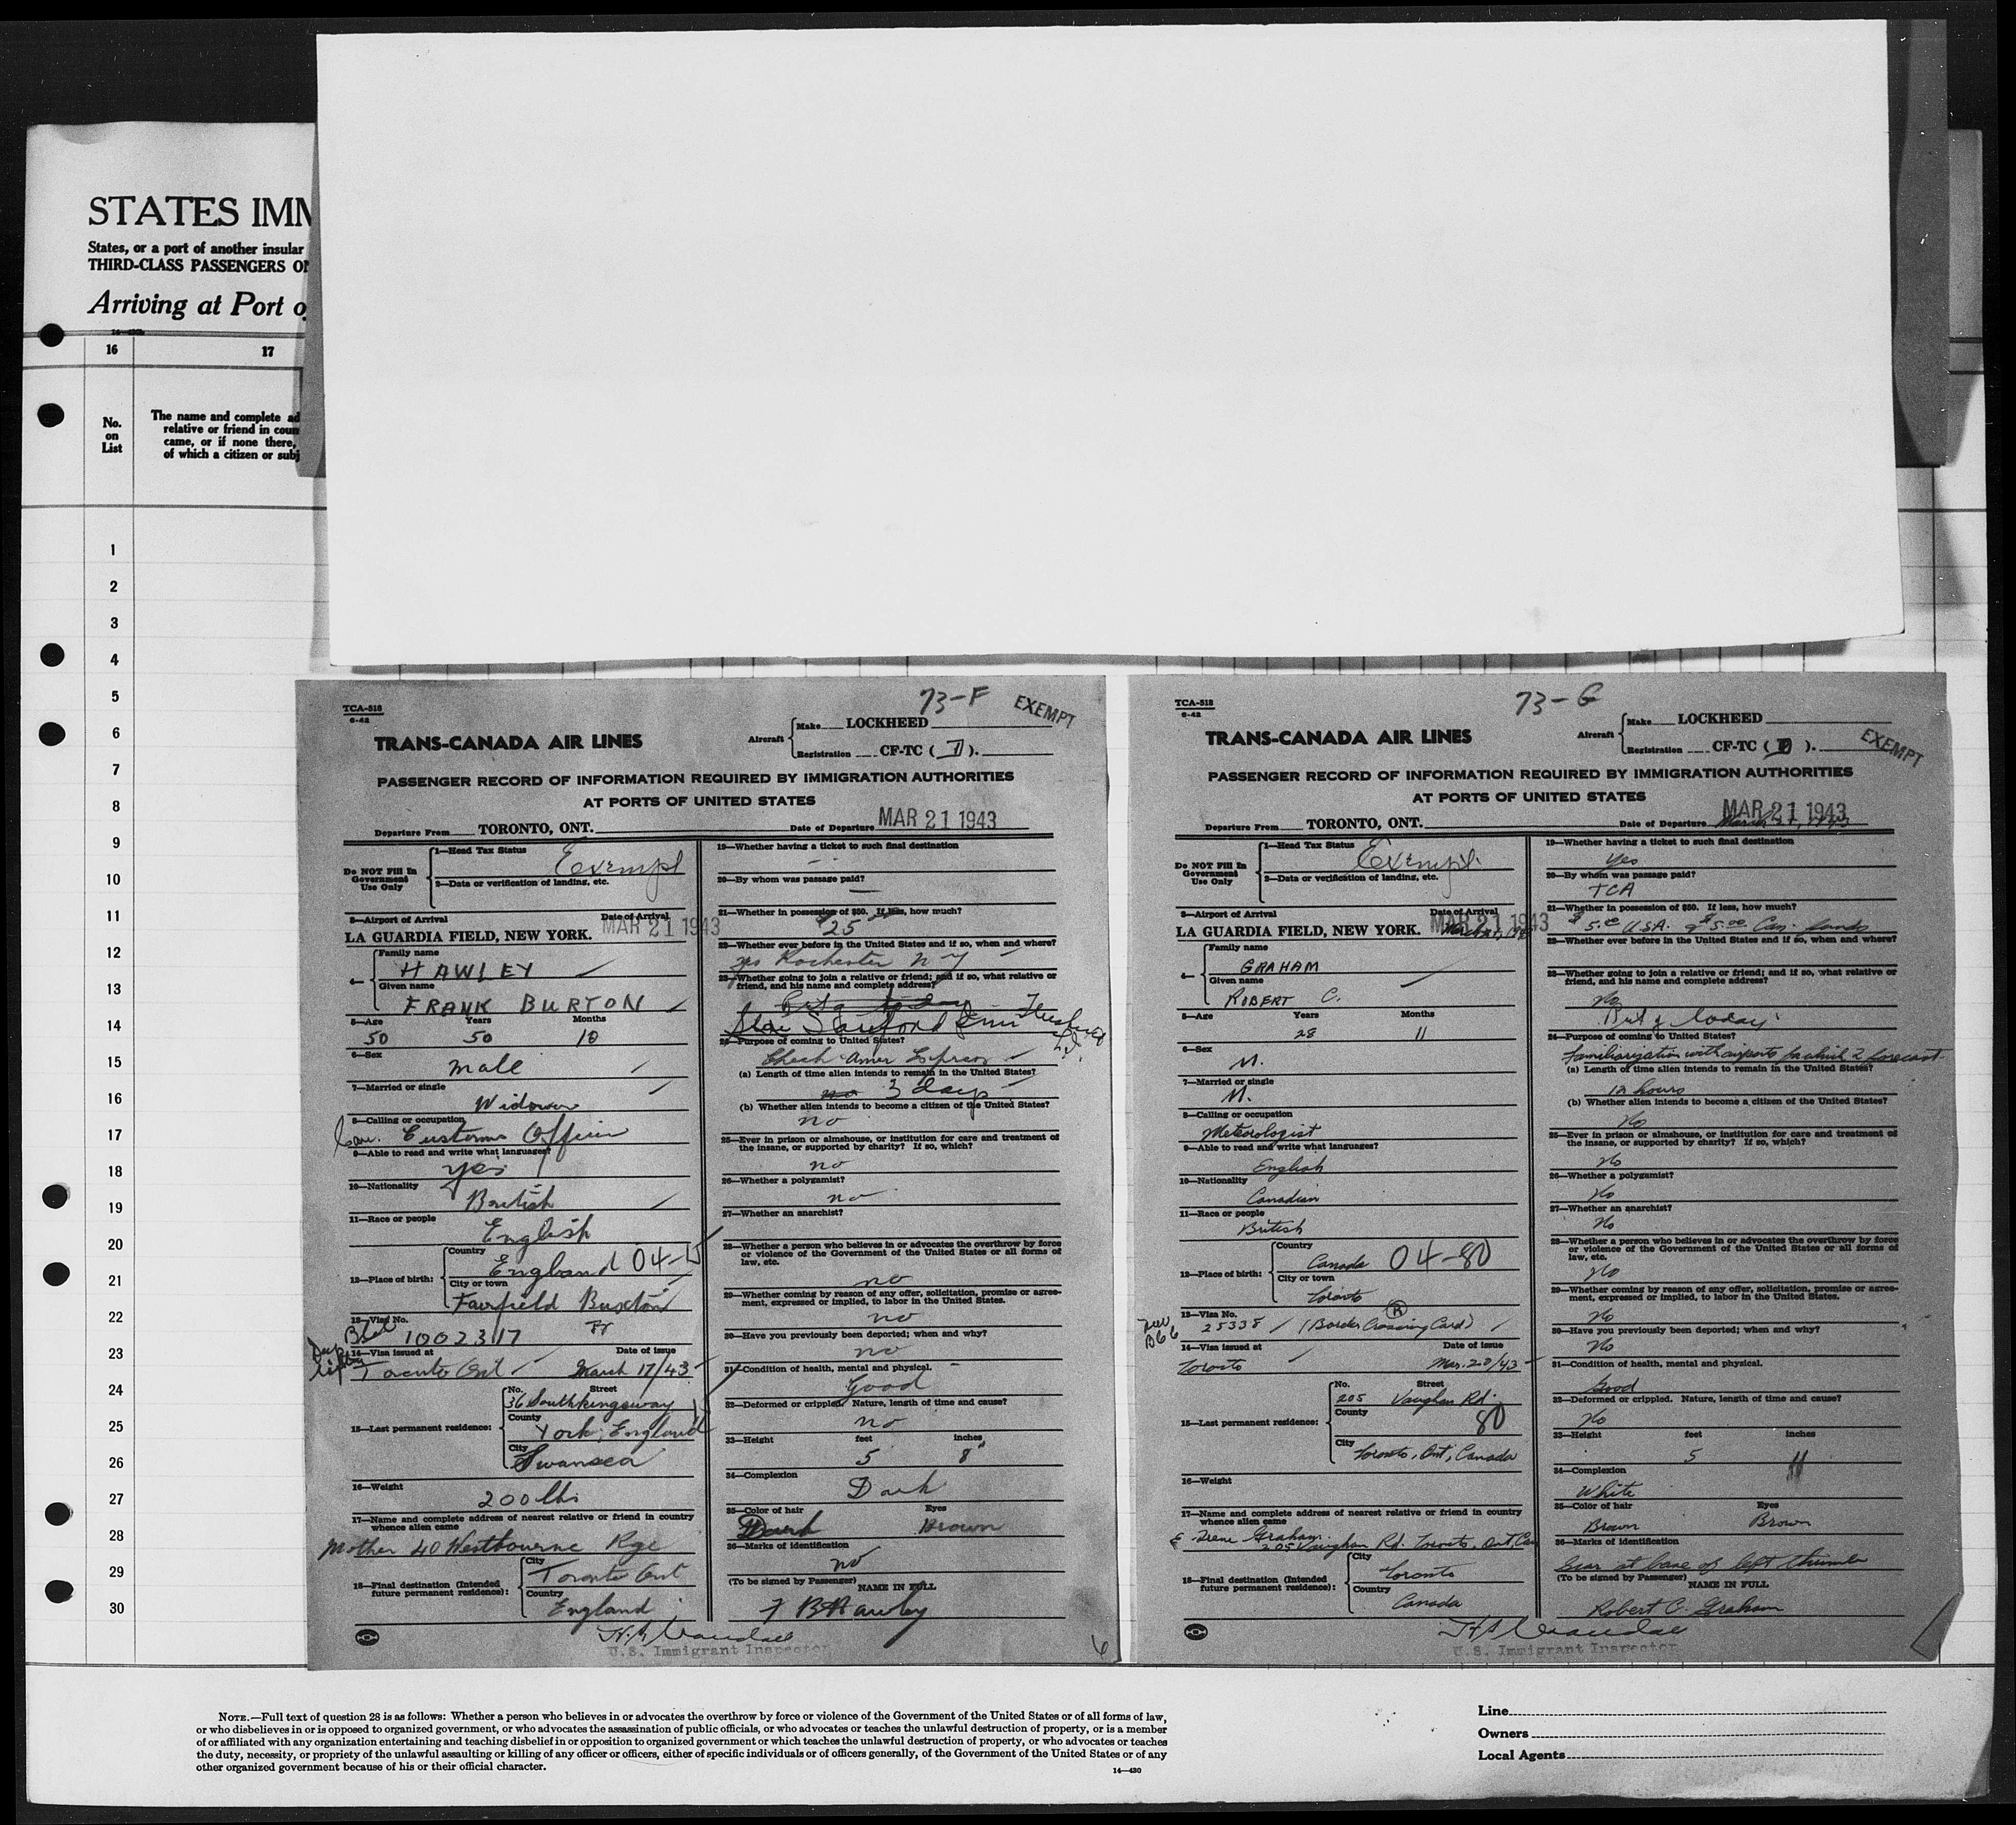 STATES IMM
States, or a port of another insular
THIRD-CLASS PASSENGERS ON
Arriving at Port o
16
17
No.
on
List
The name and complete ad
relative or friend in coun
came, or if none there,
of which a citizen or subj
1
2
3
4
5
6
7
8
9
10
11
12
13
14
15
16
17
18
19
20
21
22
23
24
25
26
27
28
29
30
73-F
EXEMPT
TCA-518
6-42
TRANS-CANADA AIR LINES
Aircraft
Make LOCKHEED
Registration CF-TC ( T ).
PASSENGER RECORD OF INFORMATION REQUIRED BY IMMIGRATION AUTHORITIES
AT PORTS OF UNITED STATES
Departure From TORONTO, ONT.
Date of Departure MAR 21 1943
Do NOT Fill In
Government
Use Only
1—Head Tax Status
Exempt
2—Data or verification of landing, etc.
3—Airport of Arrival
Date of Arrival
LA GUARDIA FIELD, NEW YORK. MAR 21 1943
4—
Family name
HAWLEY
Given name
FRANK BURTON
5—Age Years Months
50 50 10
6—Sex
Male
7—Married or single
Widower
8—Calling or occupation
Can. Customs Officer
9—Able to read and write what languages?
yes
10—Nationality
British
11—Race or people
English
12—Place of birth:
Country
England 04-
City or town
Fairfield Buxton
13—Visa No.
1002317
14—Visa issued at Date of issue
Toronto Ont March 17/43
15—Last permanent residence:
No. Street
36 Southkingsway
County
York, England
City
Swansea
16—Weight
200 lbs
17—Name and complete address of nearest relative or friend in country
whence alien came
Mother 40 Westbourne
18—Final destination (Intended
future permanent residence):
City
Toronto Ont
Country
England
U.S. Immigrant Inspector
19—Whether having a ticket to such final destination
20—By whom was passage paid?
21—Whether in possession of $50. If less, how much?
$25
22—Whether ever before in the United States and if so, when and where?
yes Rochester N Y
23—Whether going to join a relative or friend; and if so, what relative or
friend, and his name and complete address?
24—Purpose of coming to United States?
Check Amer Express
(a) Length of time alien intends to remain in the United States?
3 days
(b) Whether alien intends to become a citizen of the United States?
no
25—Ever in prison or almshouse, or institution for care and treatment of
the insane, or supported by charity? If so, which?
no
26—Whether a polygamist?
no
27—Whether an anarchist?
28—Whether a person who believes in or advocates the overthrow by force
or violence of the Government of the United States or all forms of
law, etc.
no
29—Whether coming by reason of any offer, solicitation, promise or agree-
ment, expressed or implied, to labor in the United States.
no
30—Have you previously been deported; when and why?
no
31—Condition of health, mental and physical.
Good
32—Deformed or crippled. Nature, length of time and cause?
no
33—Height feet inches
5 8"
34—Complexion
Dark
35—Color of hair Eyes
Dark Brown
36—Marks of identification
no
(To be signed by Passenger)
NAME IN FULL
F B Hawley
6
73-G
EXEMPT
TCA-518
6-42
TRANS-CANADA AIR LINES
Aircraft
Make LOCKHEED
Registration CF-TC ( ).
PASSENGER RECORD OF INFORMATION REQUIRED BY IMMIGRATION AUTHORITIES
AT PORTS OF UNITED STATES
Departure From TORONTO, ONT.
Date of Departure MAR 21 1943
March 21, 1943
Do NOT Fill In
Government
Use Only
1—Head Tax Status
Exempt
2—Data or verification of landing, etc.
3—Airport of Arrival
Date of Arrival
LA GUARDIA FIELD, NEW YORK. MAR 21 1943
4—
Family name
GRAHAM
Given name
ROBERT C.
5—Age Years Months
28 11
6—Sex
M.
7—Married or single
M.
8—Calling or occupation
Meteorologist
9—Able to read and write what languages?
English
10—Nationality
Canadian
11—Race or people
British
12—Place of birth:
Country
Canada 04-80
City or town
Toronto
13—Visa No.
25338 (Border Crossing Card)
14—Visa issued at Date of issue
Toronto Mar. 20/43
15—Last permanent residence:
No. Street
205 Vaughan Rd.
County
80
City
Toronto, Ont, Canada
16—Weight
17—Name and complete address of nearest relative or friend in country
whence alien came
E Irene Graham.
205 Vaughan Rd. Toronto, Ont, Can
18—Final destination (Intended
future permanent residence):
City
Toronto
Country
Canada
U.S. Immigrant Inspector
19—Whether having a ticket to such final destination
Yes
20—By whom was passage paid?
TCA
21—Whether in possession of $50. If less, how much?
$5.00 USA. $5.00 Can. funds
22—Whether ever before in the United States and if so, when and where?
23—Whether going to join a relative or friend; and if so, what relative or
friend, and his name and complete address?
No
24—Purpose of coming to United States?
Familiarization with airports for which I forecast
(a) Length of time alien intends to remain in the United States?
12 hours
(b) Whether alien intends to become a citizen of the United States?
No
25—Ever in prison or almshouse, or institution for care and treatment of
the insane, or supported by charity? If so, which?
No
26—Whether a polygamist?
No
27—Whether an anarchist?
No
28—Whether a person who believes in or advocates the overthrow by force
or violence of the Government of the United States or all forms of
law, etc.
No
29—Whether coming by reason of any offer, solicitation, promise or agree-
ment, expressed or implied, to labor in the United States.
No
30—Have you previously been deported; when and why?
No
31—Condition of health, mental and physical.
Good
32—Deformed or crippled. Nature, length of time and cause?
No
33—Height feet inches
5 11
34—Complexion
White
35—Color of hair Eyes
Brown Brown
36—Marks of identification
Scar at base of left thumb
(To be signed by Passenger)
NAME IN FULL
Robert C. Graham
NOTE.—Full text of question 28 is as follows: Whether a person who believes in or advocates the overthrow by force or violence of the Government of the United States or of all forms of law,
or who disbelieves in or is opposed to organized government, or who advocates the assassination of public officials, or who advocates or teaches the unlawful destruction of property, or is a member
of or affiliated with any organization entertaining and teaching disbelief in or opposition to organized government or which teaches the unlawful destruction of property, or who advocates or teaches
the duty, necessity, or propriety of the unlawful assaulting or killing of any officer or officers, either of specific individuals or of officers generally, of the Government of the United States or of any
other organized government because of his or their official character.
14—430
Line
Owners
Local Agents